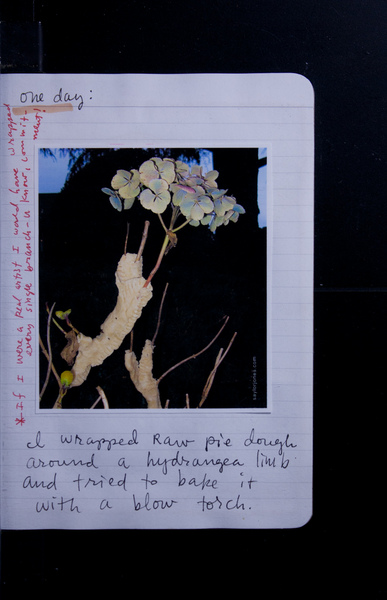 one day:
*If I were a real artist I would have wrapped
every single branch - u know, commit-
ment!
I wrapped Raw pie dough
around a hydrangea limb
and tried to bake it
with a blow torch.